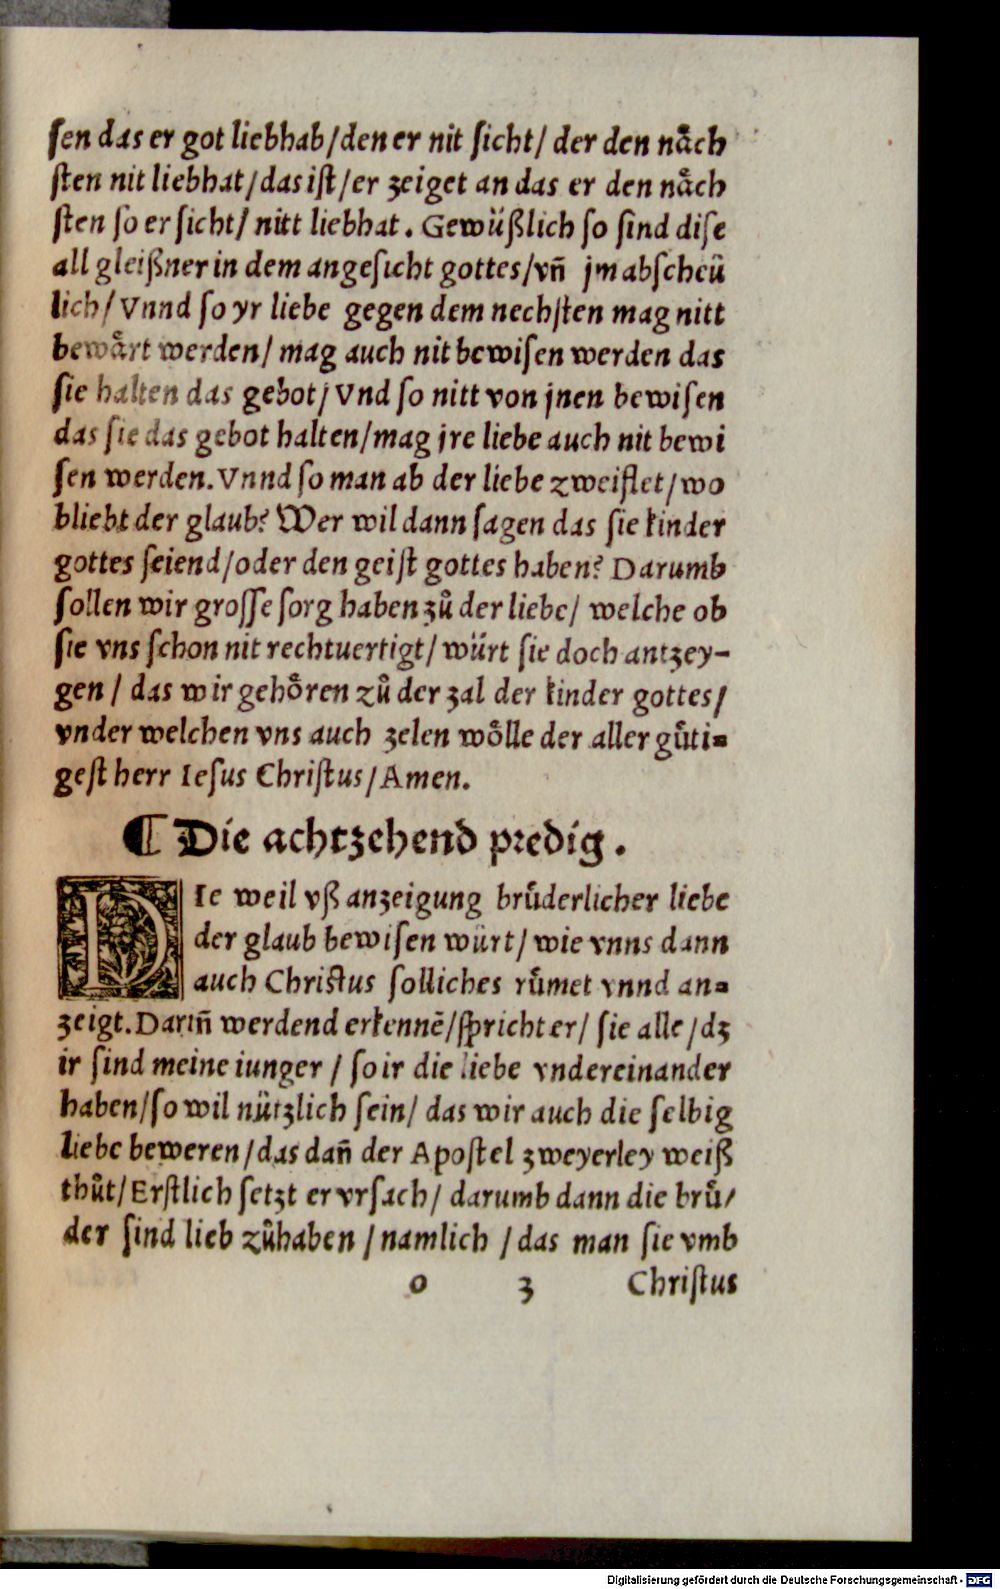 ſen das er got liebhab/den er nit ſicht/ der den naͤch
ſten nit liebhat/das iſt/er zeiget an das er den naͤch
ſten ſo er ſicht/ nitt liebhat. Gewüßlich ſo ſind diſe
all gleißner in dem angeſicht gottes/vn̄ jm abſcheü
lich/ Vnnd ſo yr liebe gegen dem nechſten mag nitt
bewaͤrt werden/ mag auch nit bewiſen werden das
ſie halten das gebot/ Vnd ſo nitt von jnen bewiſen
das ſie das gebot halten/mag jre liebe auch nit bewi
ſen werden. Vnnd ſo man ab der liebe zweiflet/wo
bliebt der glaub? Wer wil dann ſagen das ſie kinder
gottes ſeiend/oder den geiſt gottes haben? Darumb
ſollen wir groſſe ſorg haben zů der liebe/ welche ob
ſie vns ſchon nit rechtuertigt/ würt ſie doch antzey-
gen / das wir gehoͤren zů der zal der kinder gottes/
vnder welchen vns auch zelen woͤlle der aller guͤti-
geſt herr Ieſus Chriſtus/Amen.
¶ Die achtzehend predig.
DIe weil vß anzeigung bruͤderlicher liebe
der glaub bewiſen würt/ wie vnns dann
auch Chriſtus ſolliches ruͤmet vnnd an-
zeigt. Darin̄ werdend erkennē/ſpricht er/ ſie alle/dz
ir ſind meine iunger / ſo ir die liebe vndereinander
haben/ſo wil nützlich ſein/ das wir auch die ſelbig
liebe beweren/das dan̄ der Apoſtel zweyerley weiß
thůt/Erſtlich ſetzt er vrſach/ darumb dann die bruͤ/
der ſind lieb zůhaben /namlich /das man ſie vmb
o 3 Chriſtus
Digitalisierung gefördert durch die Deutsche Forschungsgemeinschaft - DFG